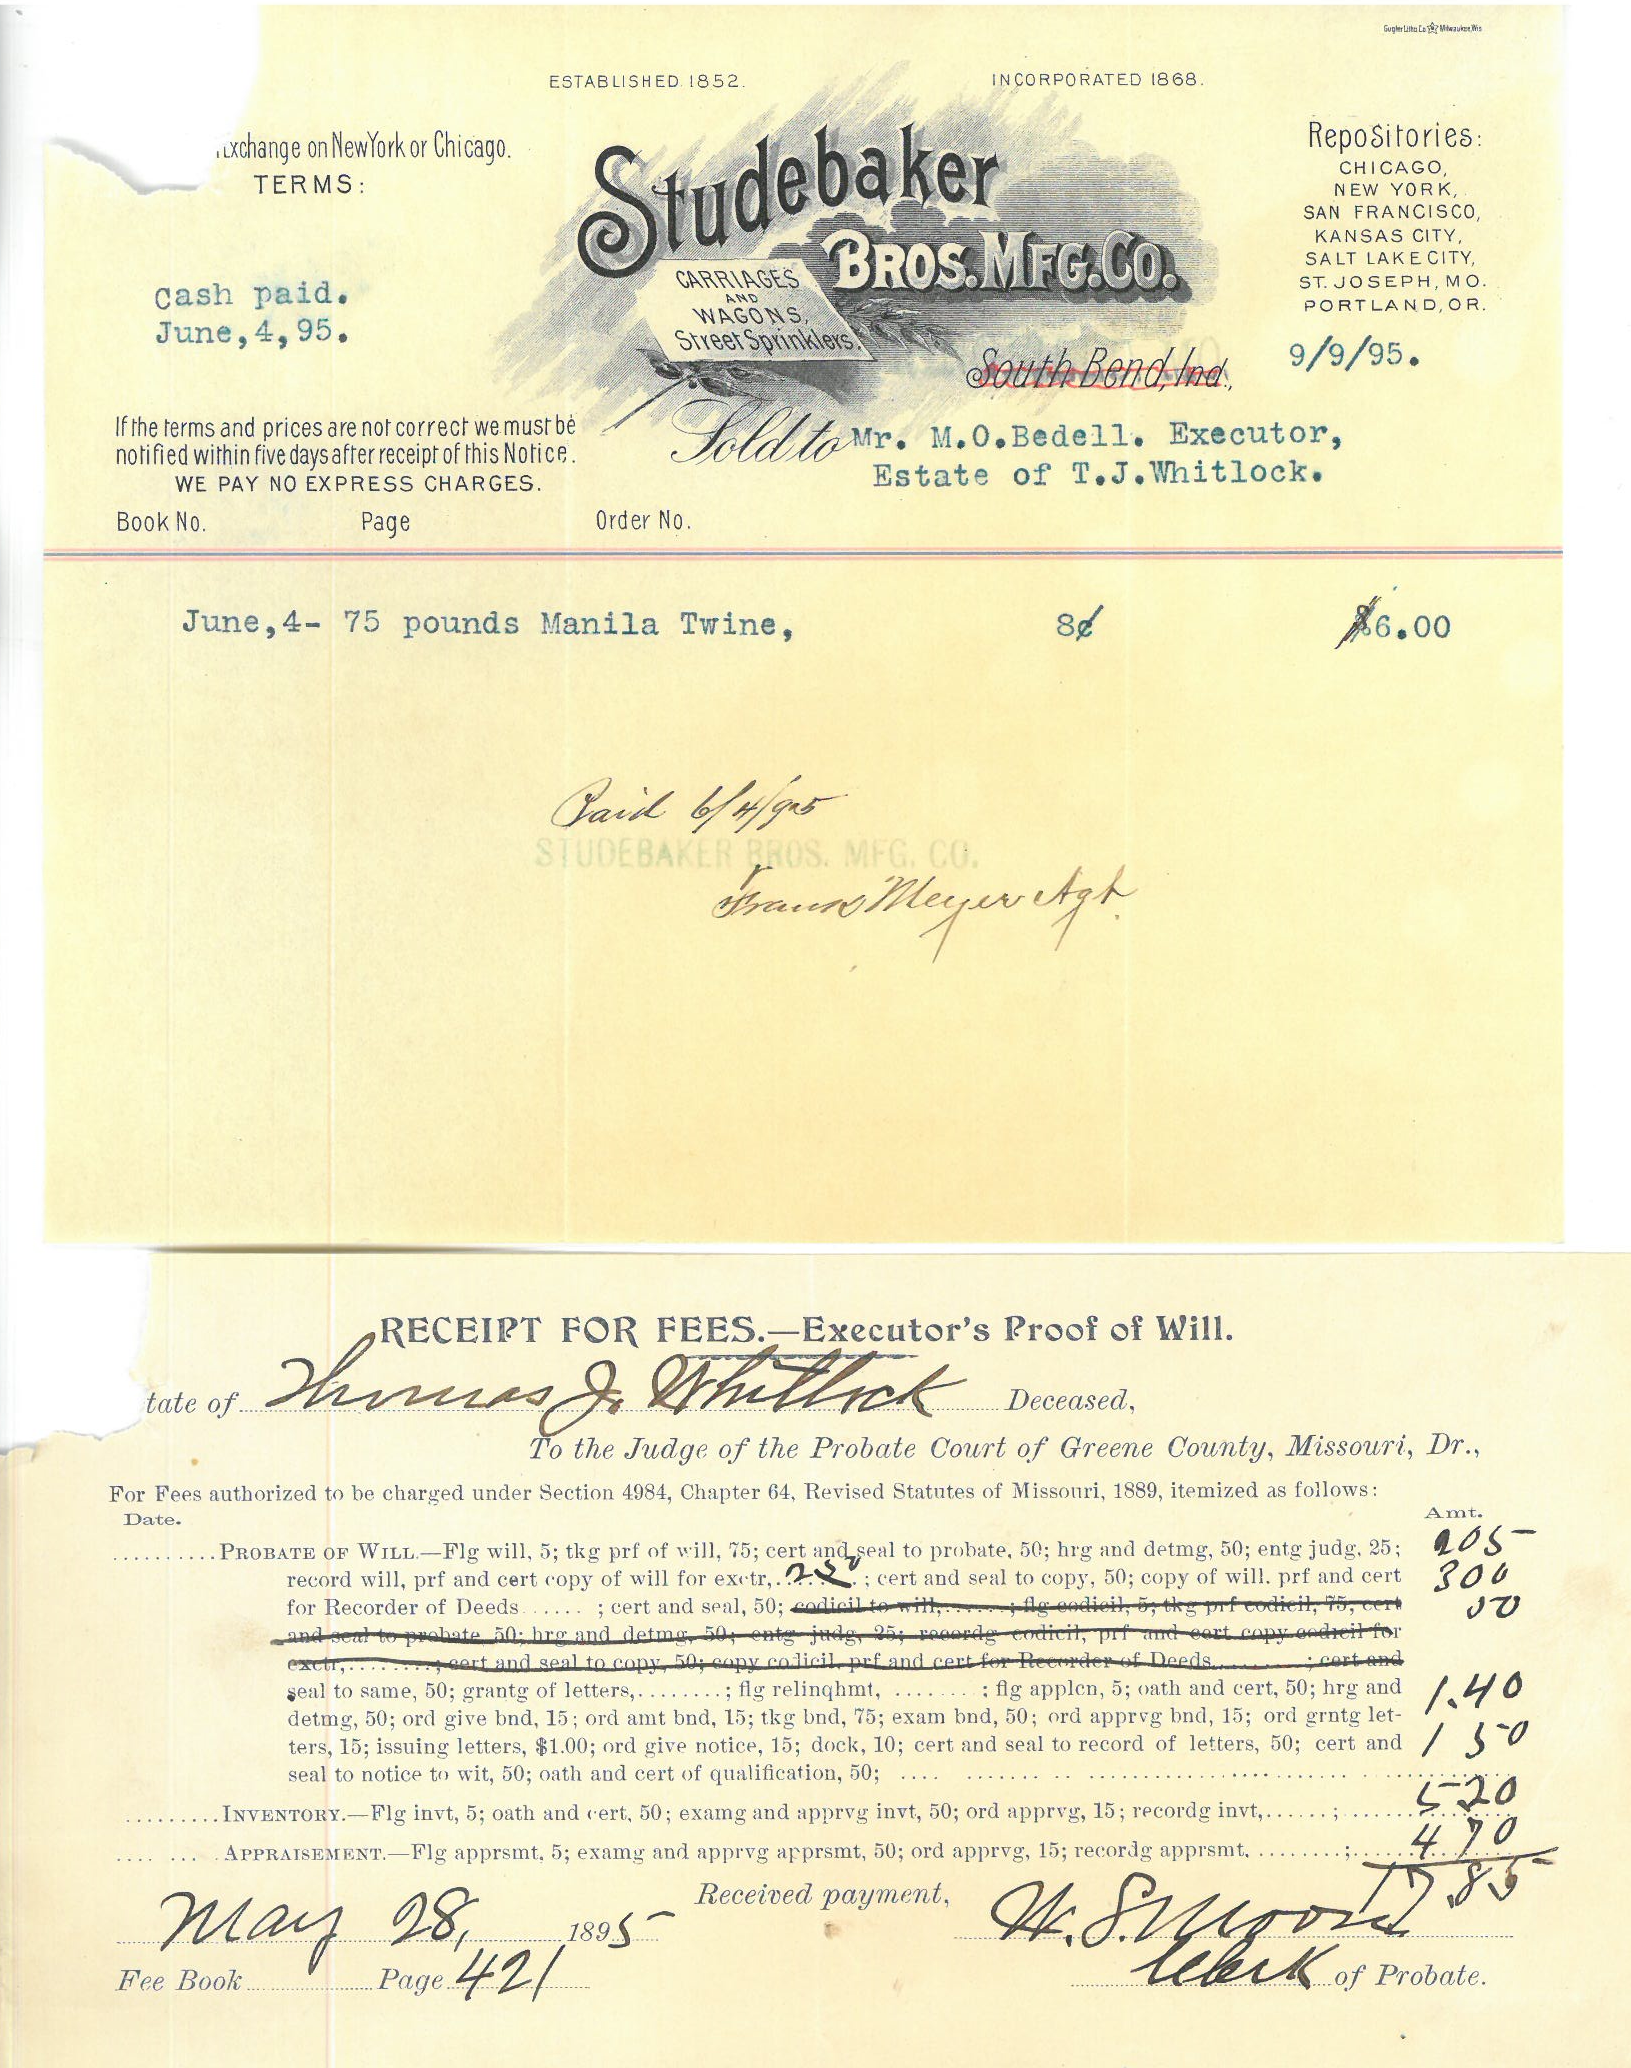 Gugler Litho. Co. Milwaukee, Wis
ESTABLISHED 1852.
INCORPORATED 1868.
Exchange on New York or Chicago.
TERMS:
Cash paid.
June,4,95.
If the terms and prices are not correct we must be
notified within five days after receipt of this Notice.
WE PAY NO EXPRESS CHARGES.
Studebaker
BROS. MFG. CO.
CARRIAGES
AND
WAGONS,
Street Sprinklers.
Repositories:
CHICAGO,
NEW YORK,
SAN FRANCISCO,
KANSAS CITY,
SALT LAKE CITY,
ST. JOSEPH, MO.
PORTLAND, OR.
South Bend, Ind., 9/9/95.
Sold to Mr. M.O.Bedell. Executor,
Estate of T.J.Whitlock.
Book No. Page Order No.
June,4- 75 pounds Manila Twine, 8¢ $6.00
Paid 6/4/95
STUDEBAKER BROS. MFG. CO.
Frank Meyer Agt.
RECEIPT FOR FEES.—Executor's Proof of Will.
tate of Thomas J. Whitlock Deceased,
To the Judge of the Probate Court of Greene County, Missouri, Dr.,
For Fees authorized to be charged under Section 4984, Chapter 64, Revised Statutes of Missouri, 1889, itemized as follows:
Date. Amt.
PROBATE OF WILL.—Flg will, 5; tkg prf of will, 75; cert and seal to probate, 50; hrg and detmg, 50; entg judg, 25; 205
record will, prf and cert copy of will for exctr, 250; cert and seal to copy, 50; copy of will. prf and cert 300
for Recorder of Deeds ...... ; cert and seal, 50; codicil to will, ......; flg codicil, 5; tkg prf codicil, 75, cert 50
and seal to probate 50; hrg and detmg, 50; entg judg, 25; recordg codicil, prf and cert copy codicil for
exctr, ........; cert and seal to copy, 50; copy codicil, prf and cert for Recorder of Deeds ........ ; cert and
seal to same, 50; grantg of letters, ........; flg relinqhmt, ........ ; flg applcn, 5; oath and cert, 50; hrg and 1.40
detmg, 50; ord give bnd, 15; ord amt bnd, 15; tkg bnd, 75; exam bnd, 50; ord apprvg bnd, 15; ord grntg let-
ters, 15; issuing letters, $1.00; ord give notice, 15; dock, 10; cert and seal to record of letters, 50; cert and 1 50
seal to notice to wit, 50; oath and cert of qualification, 50;
INVENTORY.—Flg invt, 5; oath and cert, 50; examg and apprvg invt, 50; ord apprvg, 15; recordg invt, ......; 520
APPRAISEMENT.—Flg apprsmt, 5; examg and apprvg apprsmt, 50; ord apprvg, 15; recordg apprsmt, ........; 470
17.85
May 28, 1895 Received payment, W. S. Moore
Fee Book Page 421 Clerk of Probate.